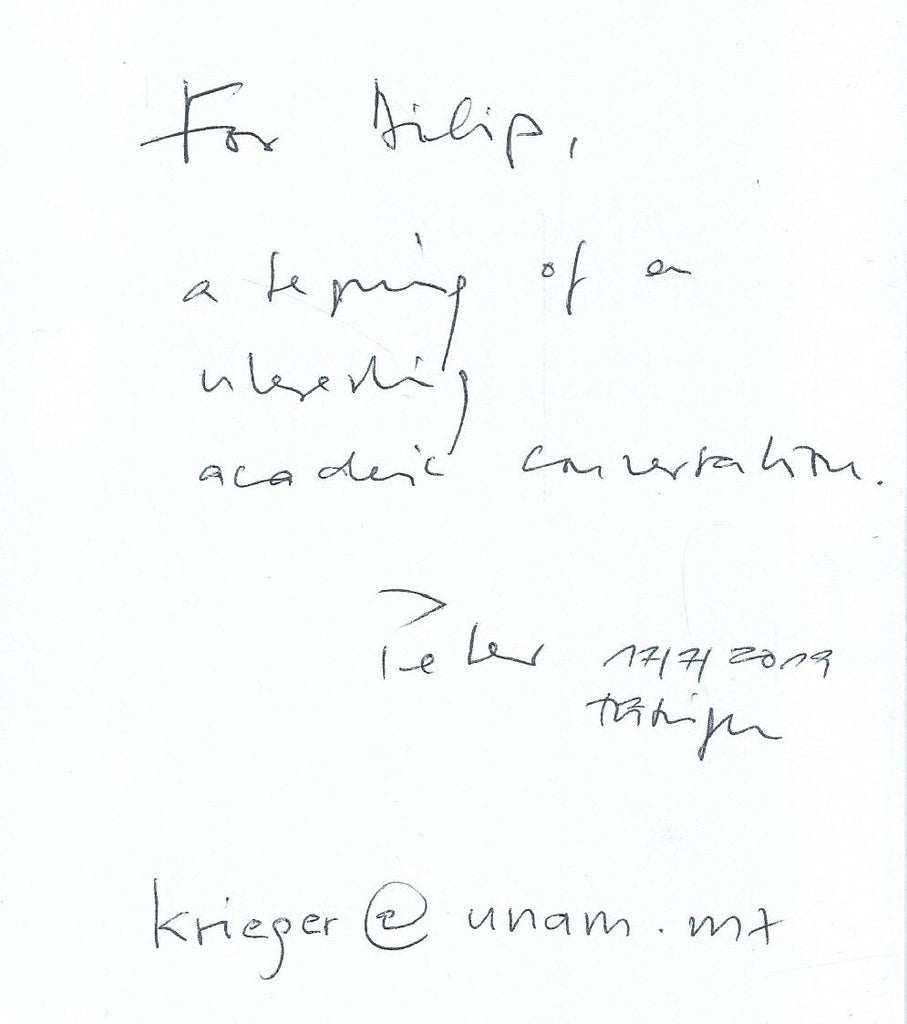 For Dilip,
a begining of an
interesting
academic conversation.
Peter 17/7/2019
Tübingen
krieger@unam.mx